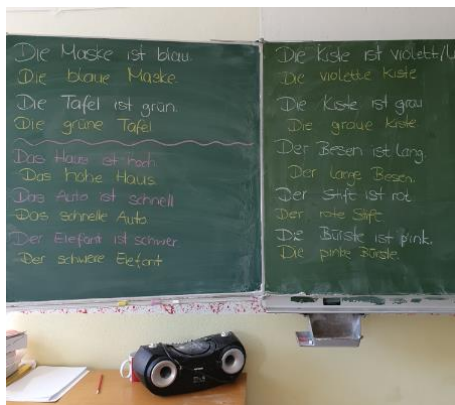 Die Maske ist blau.
Die blaue Maske
Die Tafel ist grün.
Die grüne Tafel
Das Haus ist hoch
Das hohe Haus
Das Auto ist schnell
Das schnelle Auto
Der Elefant ist schwer
Der schwere Elefant
Die Kiste ist violett/
Die violette Kiste
Die Kiste ist grau
Die graue Kiste
Der Besen ist lang.
Der lange Besen.
Der Stift ist rot
Der rote Stift
Die Bürste ist pink.
Die pinke Bürste.